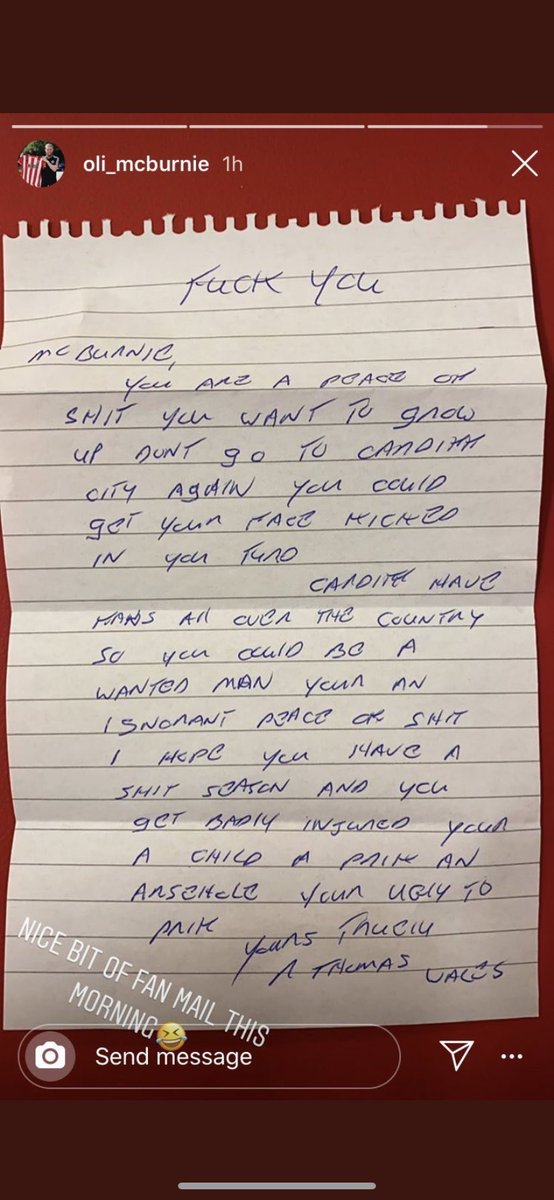 oli_mcburnie 1h
FUCK YOU
MCBURNIE,
YOU ARE A PEACE OF
SHIT YOU WANT TO grow
UP DONT go TO CARDIFF
CITY AGAIN YOU COULD
GET YOUR FACE KICKED
IN YOU TURD
CARDIFF HAVE
FANS All OVER THE COUNTRY
SO YOU COULD BE A
WANTED MAN YOUR AN
IGNORANT PEACE OF SHIT
I HOPE YOU HAVE A
SHIT SEASON AND YOU
GET BADLY INJURED YOUR
A CHILD A PRIK AN
ARSEHOLE YOUR UGLY TO
PRIK
YOURS TRUELY
A THOMAS WALES
NICE BIT OF FAN MAIL THIS
MORNING😂
Send message